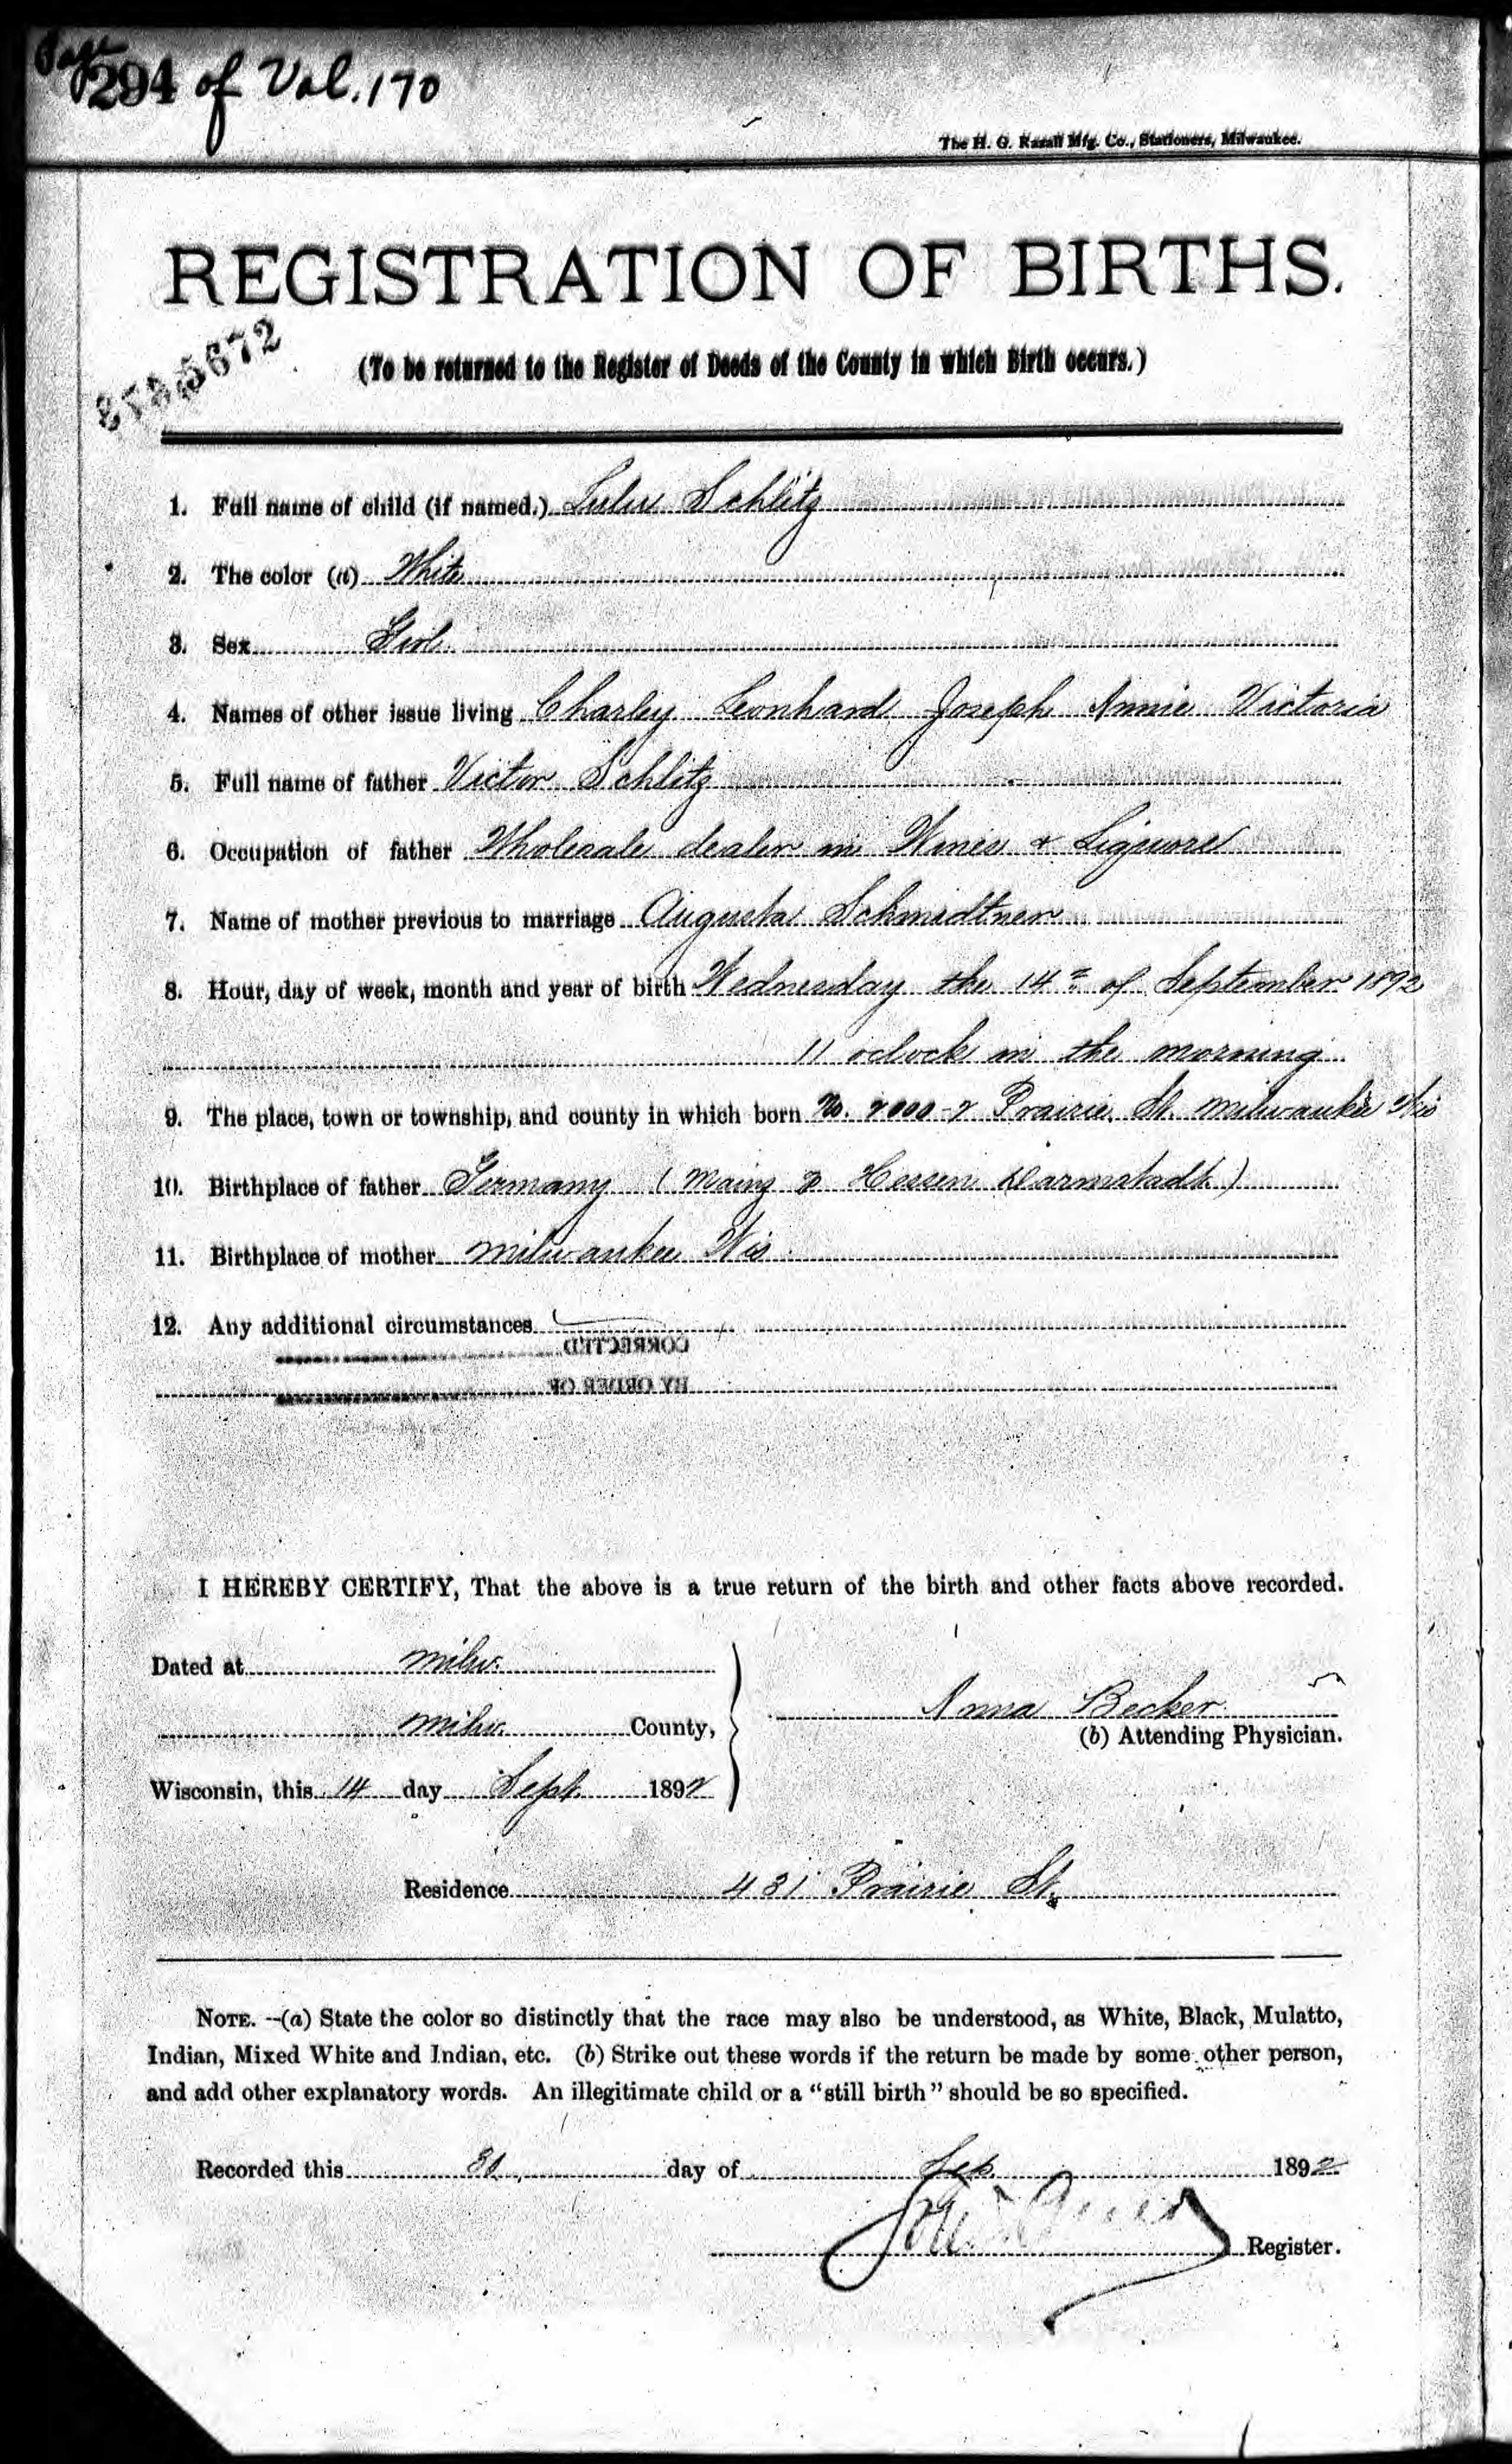 Page 294 of Vol. 170
The H. G. Razall Mfg. Co., Stationers, Milwaukee.
REGISTRATION OF BIRTHS.
5672
(To be returned to the Register of Deeds of the County in which Birth occurs.)
1. Full name of child (if named.) Lulu Schlitz
2. The color (a) White
3. Sex Girl
4. Names of other issue living Charley Leonhard Joseph Annie Victoria
5. Full name of father Victor Schlitz
6. Occupation of father Wholesale dealer in Wines & Liquors
7. Name of mother previous to marriage Augusta Schmidtner
8. Hour, day of week, month and year of birth Wednesday the 14th of September 1892
11 oclock in the morning
9. The place, town or township, and county in which born No. Prairie St. Milwaukee Wis
10. Birthplace of father Germany (Mainz Hessen Darmstadt)
11. Birthplace of mother Milwaukee Wis
12. Any additional circumstances
CORRECTED
BY ORDER OF
I HEREBY CERTIFY, That the above is a true return of the birth and other facts above recorded.
Dated at Milw.
Milw. County,
Anna Becker
(b) Attending Physician.
Wisconsin, this 14 day Sept. 1892
Residence 431 Prairie St.
NOTE. --(a) State the color so distinctly that the race may also be understood, as White, Black, Mulatto,
Indian, Mixed White and Indian, etc. (b) Strike out these words if the return be made by some other person,
and add other explanatory words. An illegitimate child or a "still birth" should be so specified.
Recorded this day of Sep. 1892
Register.